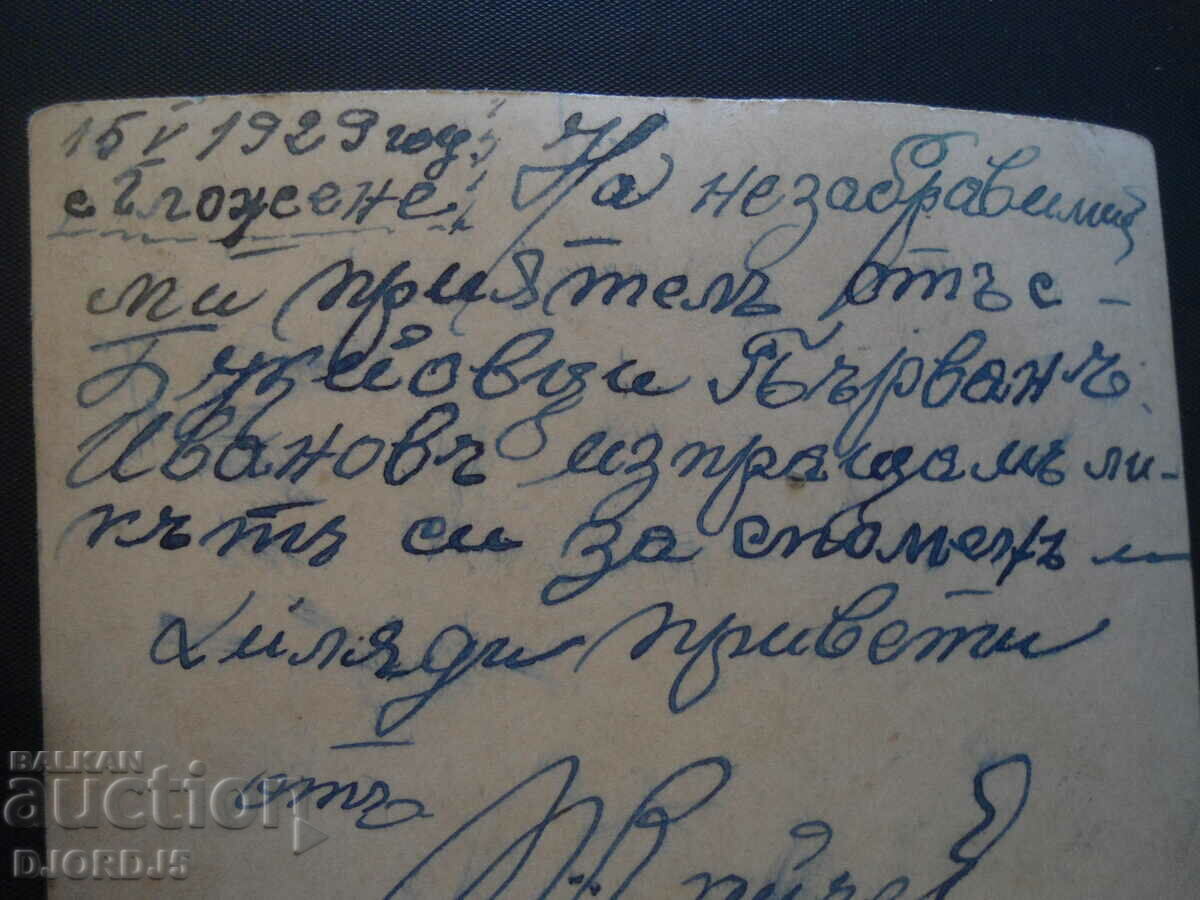 15 V 1929 год.
с. Гложене. На незабравимий
ми приятел отъ с -
Бужовци Първанъ
Ивановъ изпращамъ ли-
кътъ си за споменъ —
Хиляди привети
отъ
BALKAN
auction
DJORD_J5